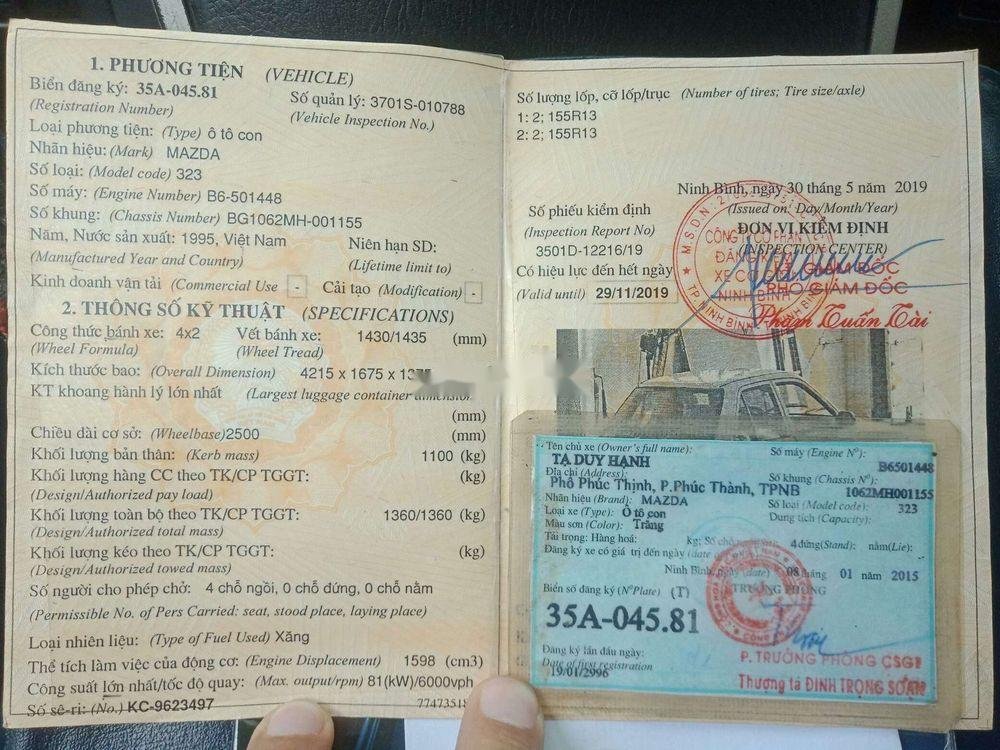 1. PHƯƠNG TIỆN (VEHICLE)
Biển đăng ký: 35A-045.81
(Registration Number)
Số quản lý: 3701S-010788
(Vehicle Inspection No.)
Loại phương tiện: (Type) ô tô con
Nhãn hiệu: (Mark) MAZDA
Số loại: (Model code) 323
Số máy: (Engine Number) B6-501448
Số khung: (Chassis Number) BG1062MH-001155
Năm, Nước sản xuất: 1995, Việt Nam
(Manufactured Year and Country)
Niên hạn SD:
(Lifetime limit to)
Kinh doanh vận tải (Commercial Use - Cải tạo (Modification) -
2. THÔNG SỐ KỸ THUẬT (SPECIFICATIONS)
Công thức bánh xe: 4x2 Vết bánh xe: 1430/1435 (mm)
(Wheel Formula) (Wheel Tread)
Kích thước bao: (Overall Dimension) 4215 x 1675 x
KT khoang hành lý lớn nhất (Largest luggage container dimension
(mm)
Chiều dài cơ sở: (Wheelbase)2500 (mm)
Khối lượng bản thân: (Kerb mass) 1100 (kg)
Khối lượng hàng CC theo TK/CP TGGT: (kg)
(Design/Authorized pay load)
Khối lượng toàn bộ theo TK/CP TGGT: 1360/1360 (kg)
(Design/Authorized total mass)
Khối lượng kéo theo TK/CP TGGT: (kg)
(Design/Authorized towed mass)
Số người cho phép chở: 4 chỗ ngồi, 0 chỗ đứng, 0 chỗ nằm
(Permissible No. of Pers Carried: seat, stood place, laying place)
Loại nhiên liệu: (Type of Fuel Used) Xăng
Thể tích làm việc của động cơ: (Engine Displacement) 1598 (cm3)
Công suất lớn nhất/tốc độ quay: (Max. output/rpm) 81(kW)/6000vph
Số sê-ri: (No.) KC-9623497
Số lượng lốp, cỡ lốp/trục (Number of tires; Tire size/axle)
1: 2; 155R13
2: 2; 155R13
Ninh Bình, ngày 30 tháng 5 năm 2019
(Issued on: Day/Month/Year)
Số phiếu kiểm định
(Inspection Report No)
3501D-12216/19
Có hiệu lực đến hết ngày
(Valid until) 29/11/2019
ĐƠN VỊ KIỂM ĐỊNH
(INSPECTION CENTER)
CÔNG TY CỔ PHẦN
ĐĂNG KIỂM
XE CƠ GIỚI
NINH BÌNH
GIÁM ĐỐC
PHÓ GIÁM ĐỐC
Phạm Tuấn Tài
Tên chủ xe (Owner's full name):
TẠ DUY HẠNH
Số máy (Engine Nº):
B6501448
Địa chỉ (Address):
Phố Phúc Thịnh, P.Phúc Thành, TPNB
Số khung (Chassis Nº):
1062MH001155
Nhãn hiệu (Brand): MAZDA
Số loại (Model code): 323
Loại xe (Type): Ô tô con
Dung tích (Capacity):
Màu sơn (Color): Trắng
Tải trọng: Hàng hoá: kg; Số chỗ 4 đứng(Stand): nằm(Lie):
Đăng ký xe có giá trị đến ngày (date
Ninh Bình, ngày (date) 08 tháng 01 năm 2015
Biển số đăng ký (NºPlate) (T) TRƯỞNG PHÒNG
35A-045.81
Đăng ký lần đầu ngày:
Date of first registration
19/01/2996
P. TRƯỞNG PHÒNG CSGT
Thượng tá ĐINH TRỌNG